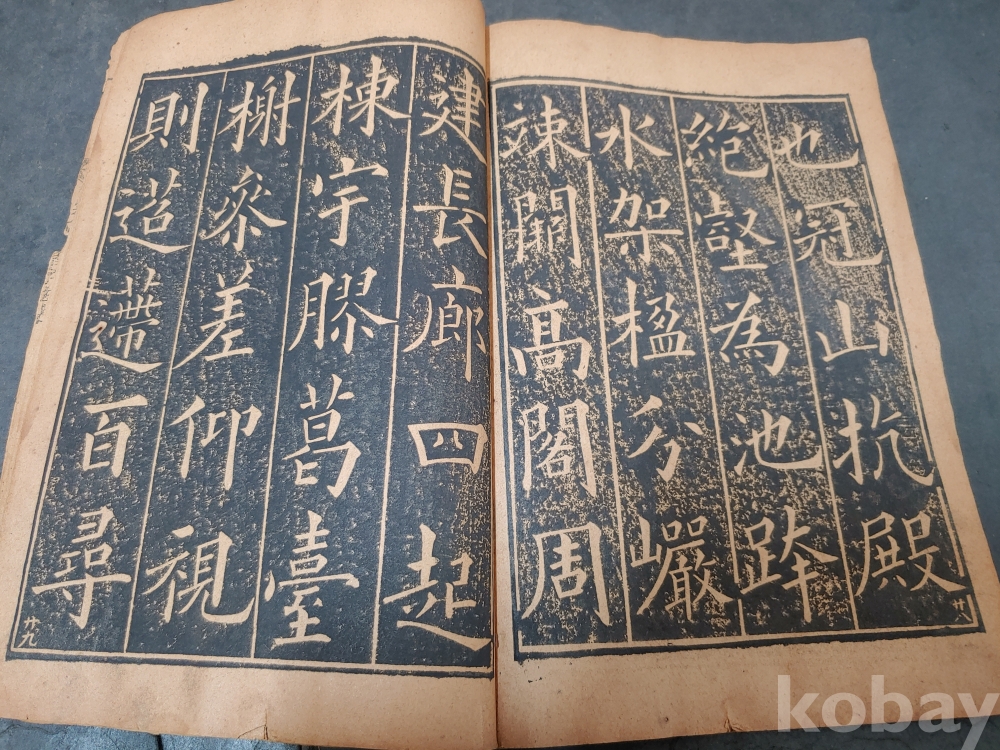 也冠山抗殿
絶壑為池跨
水架楹分巖
竦闕高閣周
廿八
建長廊四起
棟宇膠葛臺
榭參差仰視
則迢遰百尋
廿九
kobay